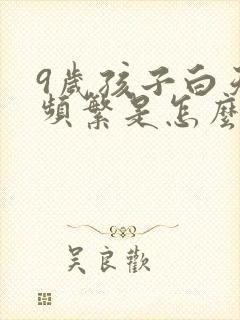 9歲孩子白天
頻繁是怎麼
吴良歡